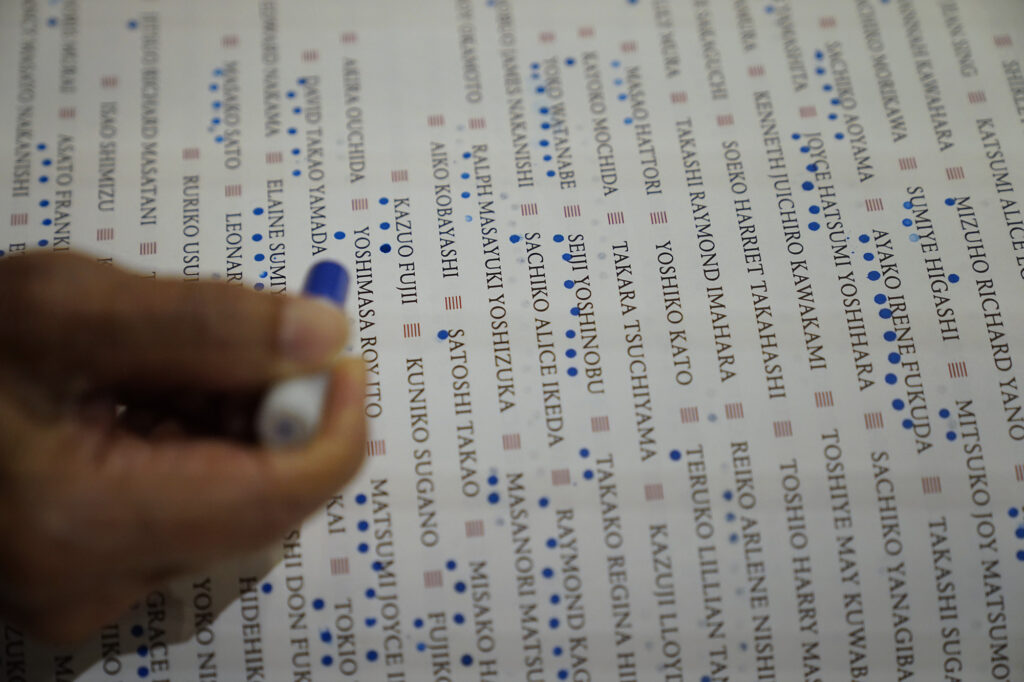 SHIRLE
JEAN SING ≡ KATSUMI ALICE
HANNAH KAWAHARA ≡ MIZUHO RICHARD YANO ≡
MORIKAWA ≡ SUMIYE HIGASHI ≡ MITSUKO JOY MATSUMO
≡ SACHIKO AOYAMA ≡ AYAKO IRENE FUKUDA ≡ TAKASHI SUGA
YAMASHITA ≡ JOYCE HATSUMI YOSHIHARA ≡ SACHIKO YANAGIBA
≡ KENNETH JUICHIRO KAWAKAMI ≡ TOSHIYE MAY KUWABA
SAKAGUCHI ≡ SOEKO HARRIET TAKAHASHI ≡ TOSHIO HARRY MAS
MURA ≡ TAKASHI RAYMOND IMAHARA ≡ REIKO ARLENE NISHI
≡ MASAO HATTORI ≡ YOSHIKO KATO ≡ TERUKO LILLIAN TA
≡ KAYOKO MOCHIDA ≡ TAKARA TSUCHIYAMA ≡ KAZUJI LLOYD
≡ YOKO WATANABE ≡ SEIJI YOSHINOBU ≡ TAKAKO REGINA HI
JAMES NAKANISHI ≡ SACHIKO ALICE IKEDA ≡ RAYMOND KAG
OKAMOTO ≡ RALPH MASAYUKI YOSHIZUKA ≡ MASANORI MATSU
≡ AIKO KOBAYASHI ≡ SATOSHI TAKAO ≡ MISAKO H
≡ KAZUO FUJII ≡ KUNIKO SUGANO ≡ FUJIKO
≡ AKIRA OUCHIDA ≡ YOSHIMASA ROY ITO ≡ MATSUMI JOYCE
≡ DAVID TAKAO YAMADA KAI ≡ TOKIO
EDWARD NAKAMA ≡ ELAINE SUMIY SHI DON FU
≡ MASAKO SATO ≡ LEONAR HIDEHIK
≡ RURIKO USU YOKO NI
RICHARD MASATANI ≡ GRACE
≡ ISAO SHIMIZU ≡
≡ ASATO FRANKI
NAKANISHI ≡